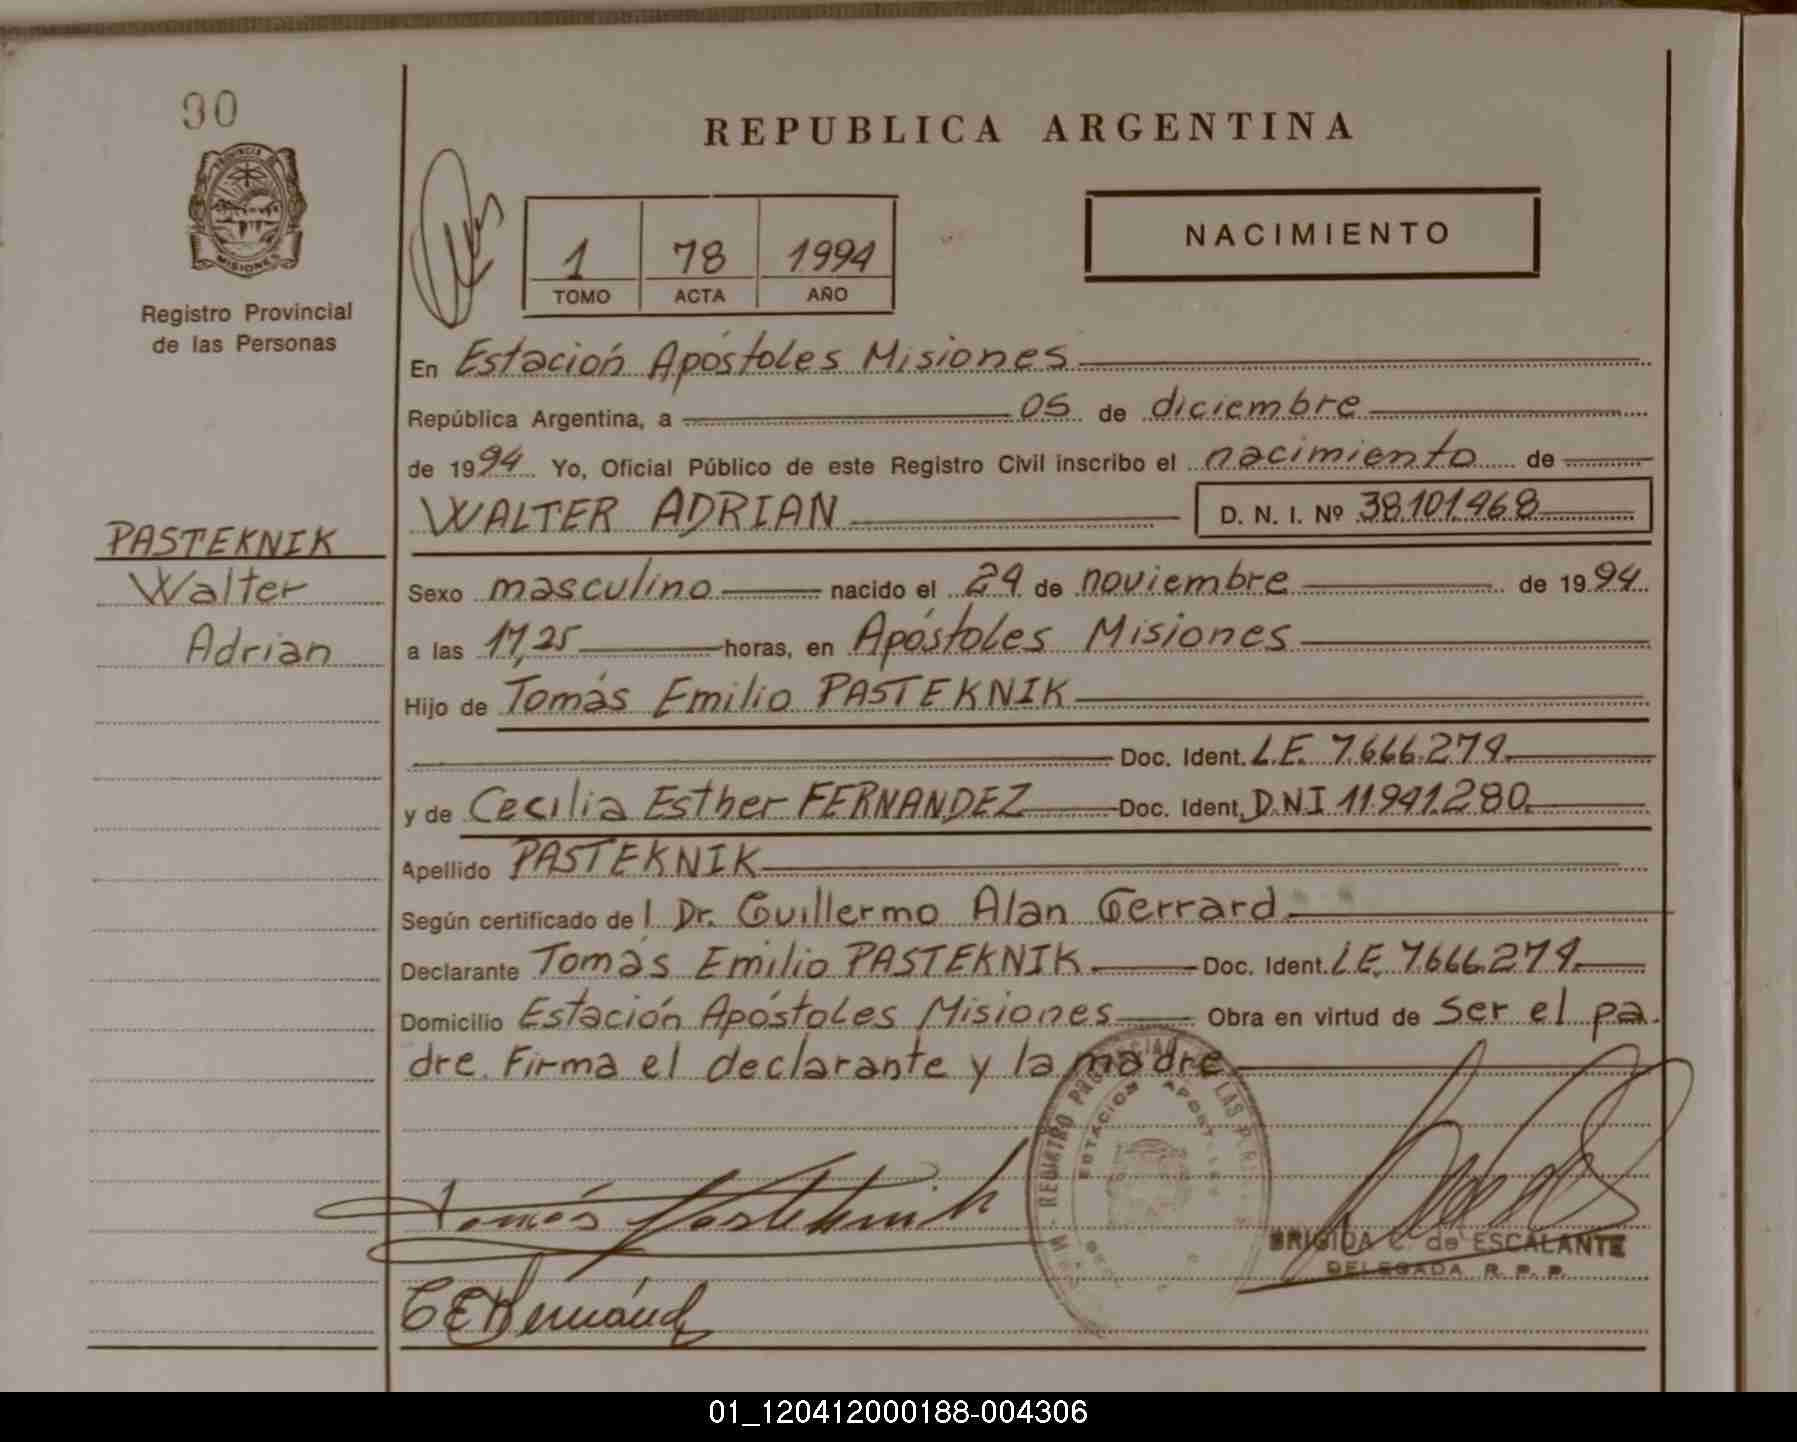 90
PROVINCIA DE
MISIONES
Registro Provincial
de las Personas
PASTEKNIK
Walter
Adrian
REPUBLICA ARGENTINA
1 78 1994
TOMO ACTA AÑO
NACIMIENTO
En Estación Apóstoles Misiones
República Argentina, a 05 de diciembre
de 1994 Yo, Oficial Público de este Registro Civil inscribo el nacimiento de
WALTER ADRIAN D. N. I. Nº 38.101.468
Sexo masculino nacido el 24 de noviembre de 1994
a las 17,25 horas, en Apóstoles Misiones
Hijo de Tomás Emilio PASTEKNIK
Doc. Ident. L.E. 7.666.274
y de Cecilia Esther FERNANDEZ Doc. Ident. DNI 11.941.280
Apellido PASTEKNIK
Según certificado del Dr. Guillermo Alan Gerrard
Declarante Tomás Emilio PASTEKNIK Doc. Ident. L.E. 7.666.274
Domicilio Estación Apóstoles Misiones Obra en virtud de Ser el pa-
dre. Firma el declarante y la madre
REGISTRO PROVINCIAL DE LAS PERSONAS
ESTACION APOSTOLES
Tomás Pasteknik
BRIGIDA C. de ESCALANTE
DELEGADA R. P. P.
C E Fernández
01_120412000188-004306